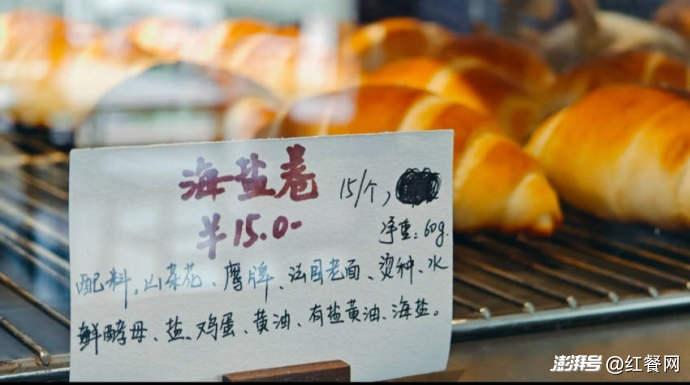 海盐卷 15/个，
¥15.0-
净重：60g.
配料，山茶花、鹰牌、法国老面、烫种、水
鲜酵母、盐、鸡蛋、黄油、有盐黄油、海盐。
澎湃号@红餐网